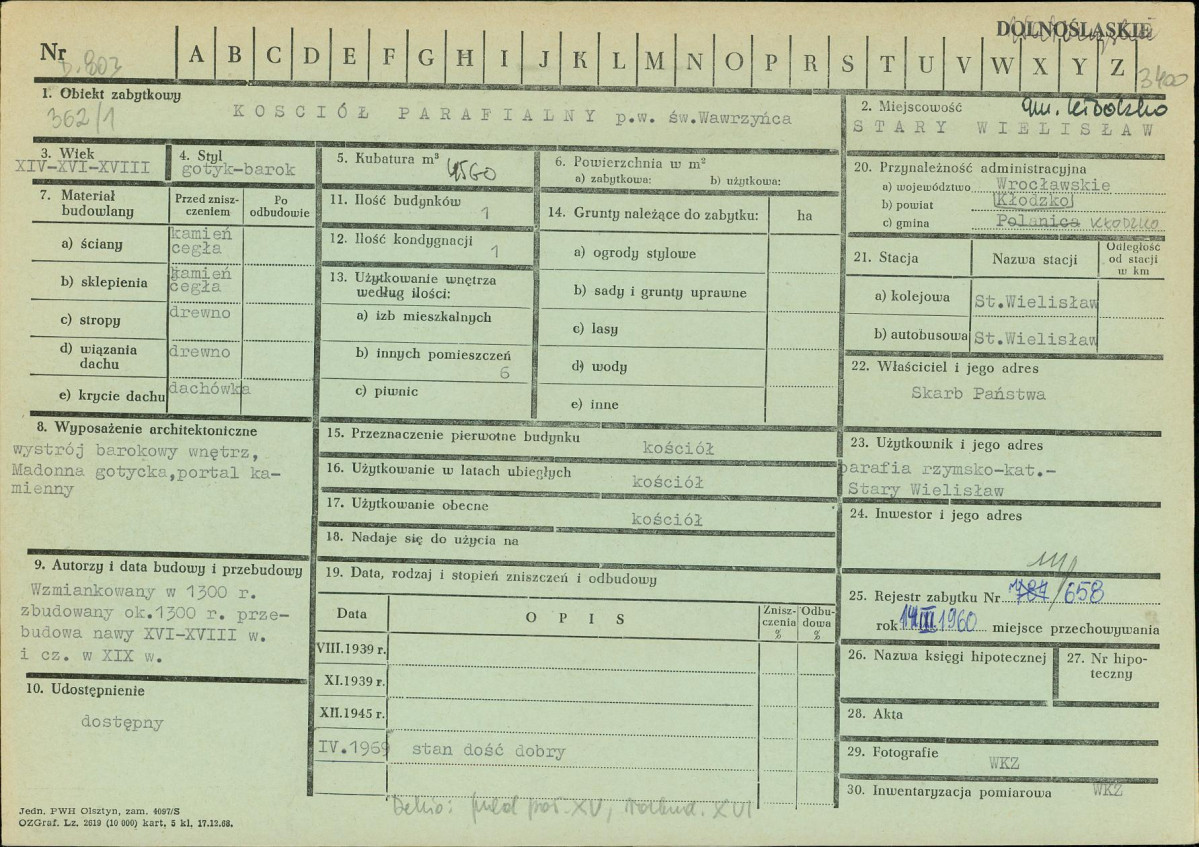 DOLNOŚLĄSKIE
Nr
A B C D E F G H I J K L M N O P R S T U V W X Y Z
3400
1. Obiekt zabytkowy
362/1
KOSCIÓŁ PARAFIALNY p.w. św.Wawrzyńca
2. Miejscowość
gm. Kłodzko
STARY WIELISŁAW
3. Wiek
XIV-XVI-XVIII
4. Styl
gotyk-barok
5. Kubatura m³
4560
6. Powierzchnia w m²
a) zabytkowa: b) użytkowa:
20. Przynależność administracyjna
a) województwo Wrocławskie
b) powiat Kłodzko
c) gmina Polanica KŁODZKO
7. Materiał budowlany
Przed znisz-
czeniem
Po
odbudowie
a) ściany kamień
cegła
b) sklepienia kamień
cegła
c) stropy drewno
d) wiązania
dachu drewno
e) krycie dachu dachówka
11. Ilość budynków
1
12. Ilość kondygnacji
1
13. Użytkowanie wnętrza
według ilości:
a) izb mieszkalnych
b) innych pomieszczeń
6
c) piwnic
14. Grunty należące do zabytku: ha
a) ogrody stylowe
b) sady i grunty uprawne
c) lasy
d) wody
e) inne
21. Stacja Nazwa stacji
Odległość
od stacji
w km
a) kolejowa St.Wielisław
b) autobusowa St.Wielisław
22. Właściciel i jego adres
Skarb Państwa
8. Wyposażenie architektoniczne
wystrój barokowy wnętrz,
Madonna gotycka,portal ka-
mienny
15. Przeznaczenie pierwotne budynku
kościół
16. Użytkowanie w latach ubiegłych
kościół
17. Użytkowanie obecne
kościół
18. Nadaje się do użycia na
23. Użytkownik i jego adres
parafia rzymsko-kat.-
Stary Wielisław
24. Inwestor i jego adres
9. Autorzy i data budowy i przebudowy
Wzmiankowany w 1300 r.
zbudowany ok.1300 r. prze-
budowa nawy XVI-XVIII w.
i cz. w XIX w.
10. Udostępnienie
dostępny
19. Data, rodzaj i stopień zniszczeń i odbudowy
Data OPIS
Znisz-
czenia
%
Odbu-
dowa
%
VIII.1939 r.
XI.1939 r.
XII.1945 r.
IV.1969 stan dość dobry
25. Rejestr zabytku Nr 784/658
rok 14 III 1960 miejsce przechowywania
26. Nazwa księgi hipotecznej
27. Nr hipo-
teczny
28. Akta
29. Fotografie
WKZ
30. Inwentaryzacja pomiarowa WKZ
XV, XVI
Jedn. PWH Olsztyn, zam. 4097/S
OZGraf. Lz. 2619 (10 000) kart. 5 kl. 17.12.68.